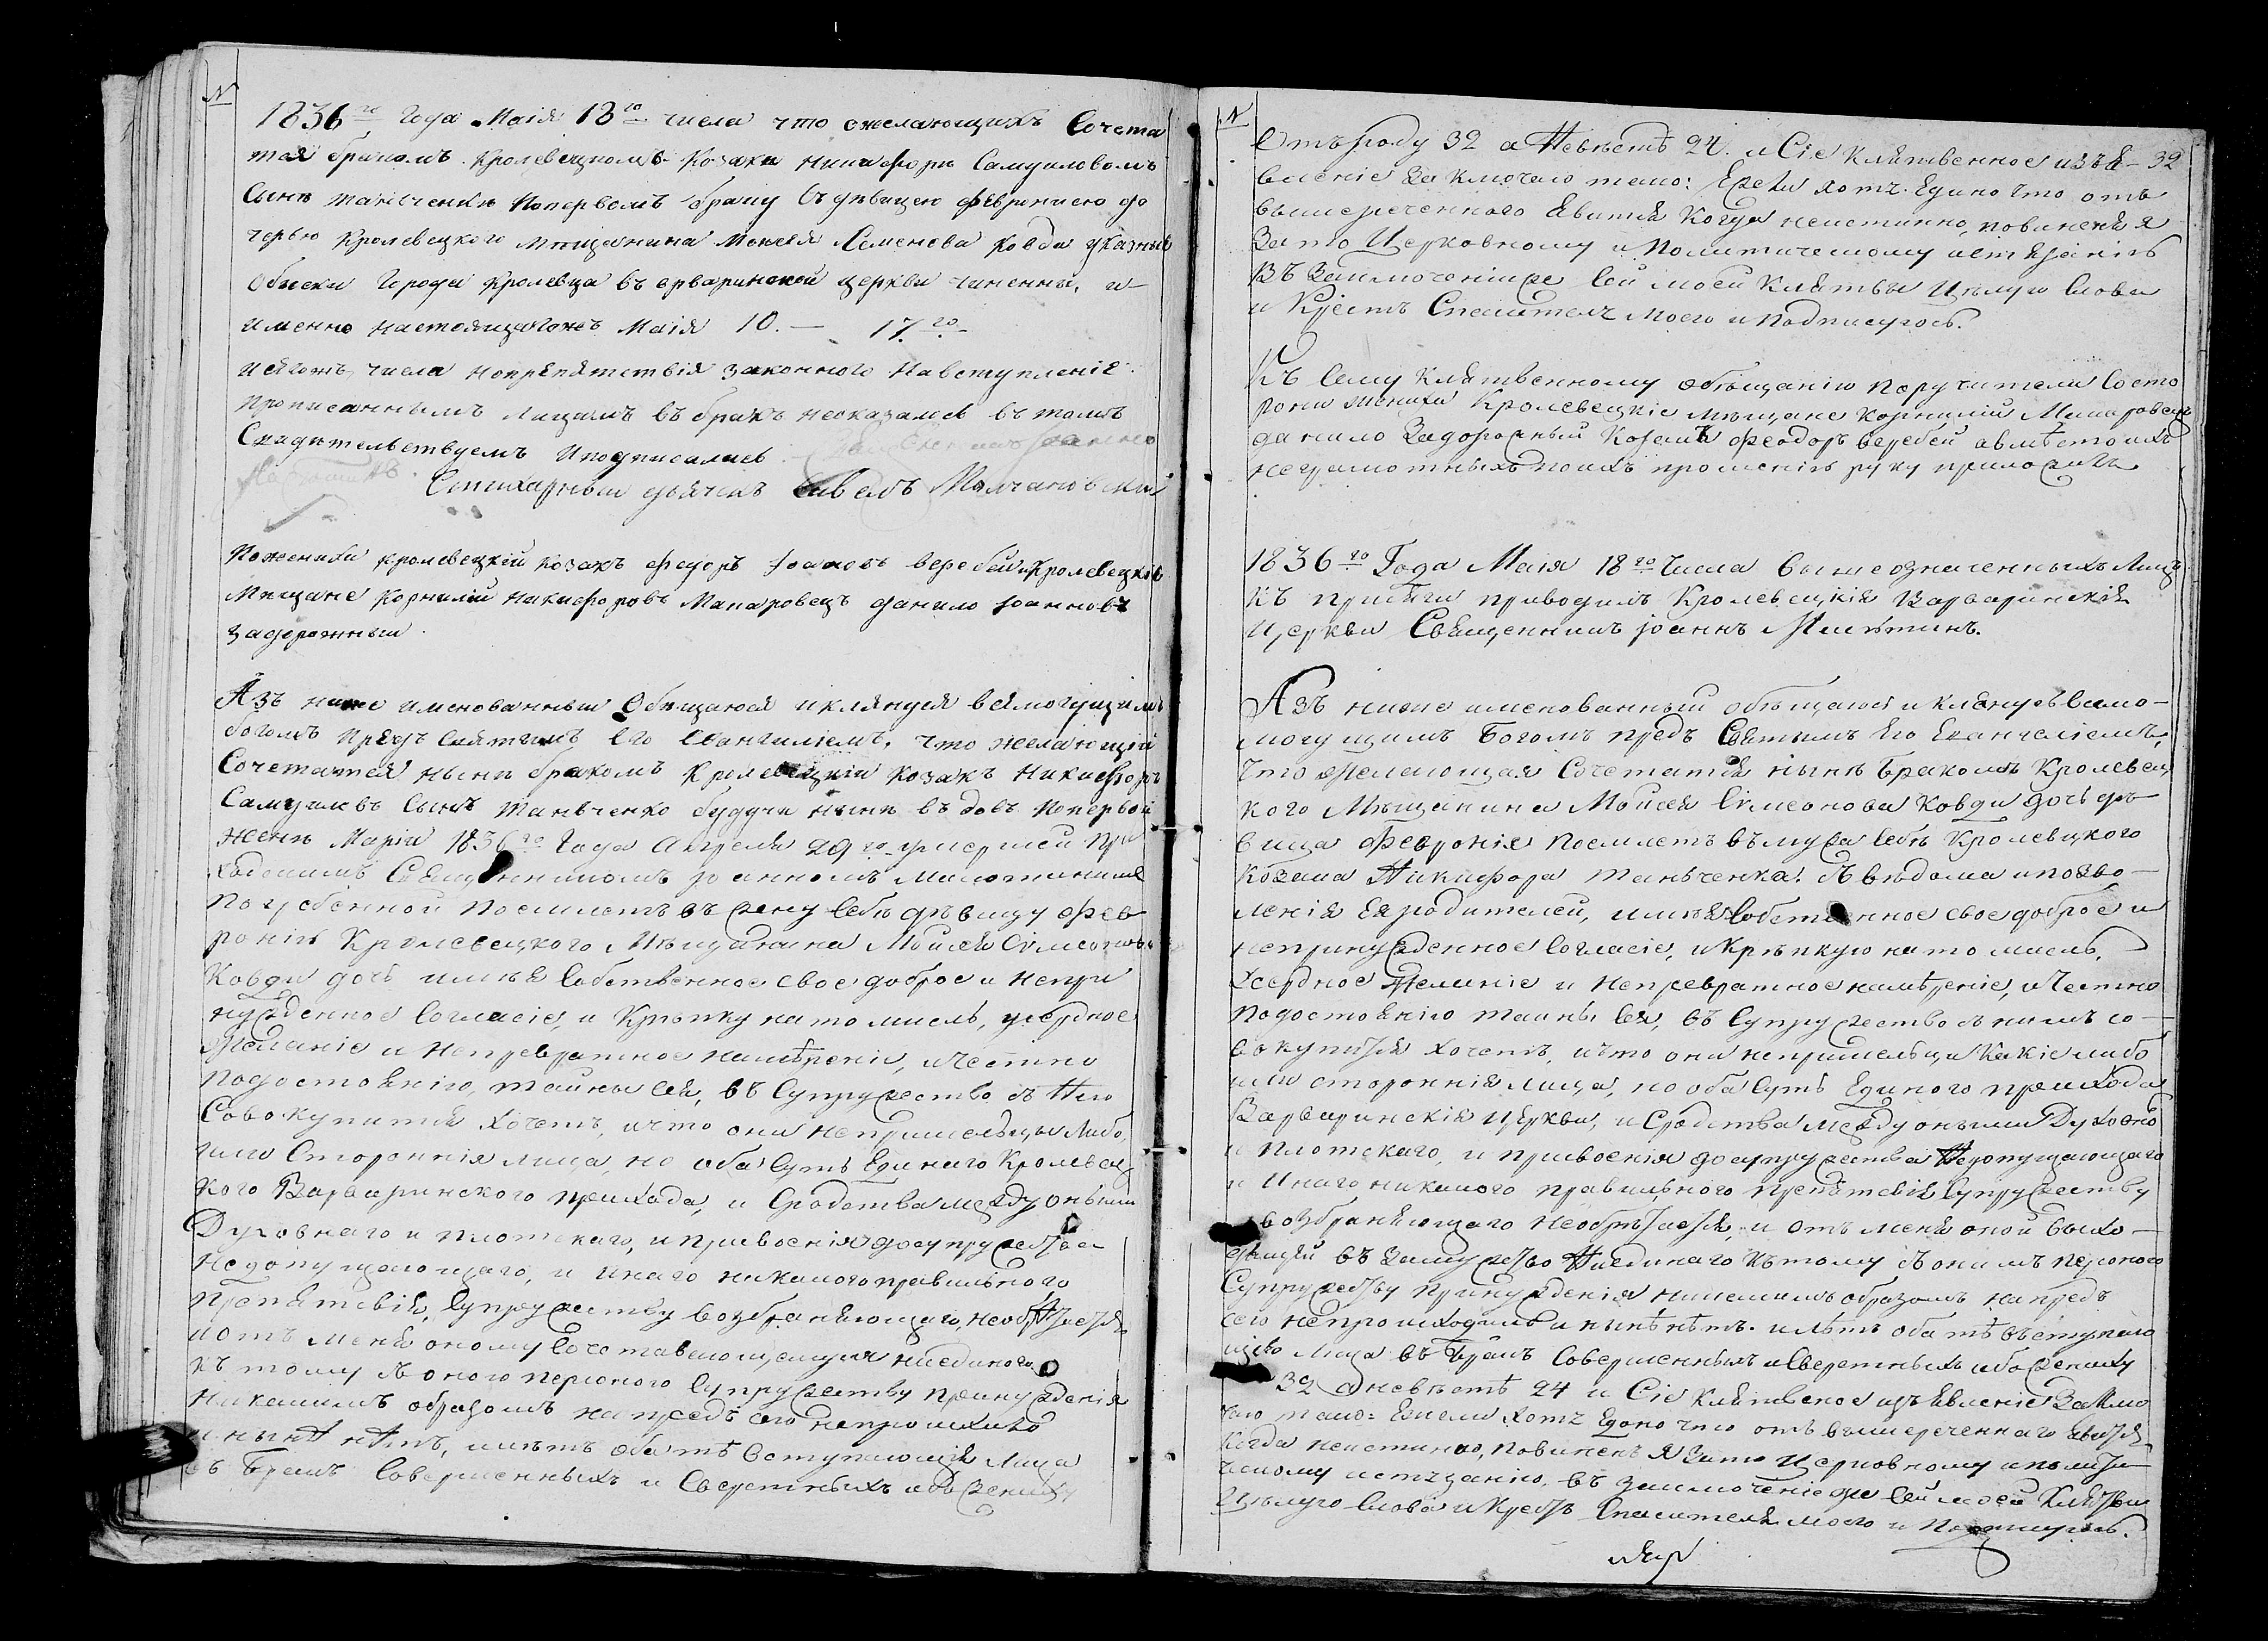 N
1836го Года Маія 18го числа что ожелающихъ Сочета
тся бракомъ Кролевецкомъ Козаки Никифорѣ Самуиловомъ
Сынѣ танченкѣ Попервомъ браку Съ дѣвицею Феврониею до
черью Кролевецкого мѣщанина Моисея Семенова Ковди указные
Обыски Города Кролевца въ ерваринской церкви чиненны, и
именно настоящагожъ Маія 10. — 17.го
исягожъ числа непрепятствія законного Навступленіе
прописаннымъ лицамъ въ бракъ неоказалось въ томъ
Свидѣтельствуемъ Иподписались
Стихарный дьячекъ Павелъ Молчановский
Поженихи кролевецкій козакъ Федоръ Іоановъ Веребей и Кролевецкіе
Мѣщане Корнилій Никифоровъ Макаровецъ Данило Іоанновъ
Задорожный.
Азъ ниже именованный Обѣщаюся иклянуся всемогущимъ
богомъ предъ святымъ его Евангиліемъ, что желающій
Сочетатся нынѣ бракомъ Кролевецкій козакъ Никифоръ
Самуиловъ Сынъ Танченко будучи нынѣ въдовъ Попервой
женѣ Маріи 1836го Года Апреля 29го умершей При
ходскимъ Священникомъ Іоанномъ
Погребенной Поемлетъ въ жену себѣ дѣвицу Фев
ронію Кролевецкого Мѣщанина Моисея Сѵмеонова
Ковди дочь имѣя Собственное свое доброе и непри
нужденное Согласіе, и Крѣпку на то мысль, усердное
Желаніе и непревратное намѣреніе, ичестно
подостоянію, тайны сея, въ Супружество съ Нею
Совокупится хочетъ, ичто они непришельцы либо,
или Сторонніе лица, но оба суть Единаго Кролевец
кого Варваринского прихода, и Сродства между оными
Духовнаго и плотскаго, и присвоенія досупружества
недопущающаго, и инаго никакого правильного
препятствія, Супружеству возбраняющаго, необрѣтается
иотъ меня оному Сочетавающемуся ниединого
къ тому съ оною персоною Супружеству принужденія
никакимъ образомъ напредъ сего непроисходило
инынѣ нѣтъ, илѣтъ оба тѣ вступающія Лица
въ Бракъ Совершенныхъ и Сверстныхъ ибо жениху
N
Отъ роду 32 а Невѣстѣ 24. и Сіе клятвенное изъя- 32
вленіе Заключаю тако: Ежели хотя Едино что отъ
вышереченного Явится Когда неистинно, повиненъ я
За то Церковному и Политическому истязанію
Въ Заключеніи же Сей моей Клятвы Цѣлую Слова
и Крестъ Спасителя моего и Подписуюсь.
Къ Сему клятвенному обѣщанію поручители Состо
роны жениха Кролевецкіе Мѣщане Корнилій Макаровецъ
данило Задорожный Козакъ Феодоръ веребей а вмѣсто ихъ
неграмотныхъ поихъ прошенію руку приложилъ
1836го Года Маія 18го Числа вышеозначенныхъ Лицъ
къ присяги приводилъ Кролевецкія Варваринскія
Церкви Священникъ Іоаннъ
Азъ ниже именованный обѣщаюся и клянусь всемо-
могущимъ Богомъ предъ Святымъ Его Евангеліемъ,
что желающая Сочетатся нынѣ Бракомъ Кролевец
кого Мѣщанина Моисея Сѵмеонова Ковди дочь дѣ
вица Февронія Поемлетъ въ мужа Себѣ Кролевецкого
Козака Никифора Танченка. Съ вѣдома ипозво-
ленія Ея родителей, имѣя Собственное свое доброе и
непринужденное Согласіе, и крѣпкую на то мысль,
Усердное Желаніе и непревратное намѣреніе, ичестно
подостоянію тайны Сея, въ Супружество съ нимъ со-
вокупится хочетъ, ичто они непришельци какіе либо
или сторонніе лица, но оба Суть Единого прихода
Варваринскія Церкви, и Сродства между оными Духовно
и плотскаго, и присвоенія досупружества Недопущающаго
и Инаго никакого правильного препятствія Супружеству
возбраняющаго необрѣтается, и отъ меня оной выхо-
дящей въ Замужство Ниединаго къ тому съ онимъ персоною
Супружеству Принужденія никакимъ образомъ напредъ
сего непроисходило и нынѣ нѣтъ. и лѣтъ оба тѣ вступаю
щіе Лица въ Бракъ Совершенныхъ и Сверстныхъ ибо Жениху
32 а невѣстѣ 24 и Сіе Клятвеное изъявленіе Заклю
чаю тако: Ежели хотя Едоно что отъ вышереченнаго явится
Когда неистинно, повиненъ Я Зато Церковному иполити
ческому истязанію, въ заключеніе же Сей моей Клятвы
Цѣлую Слова и Крестъ Спасителя моего и Подписуюсь.